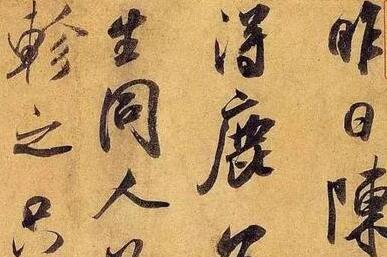 昨日陳
得鹿
生同人
軫之